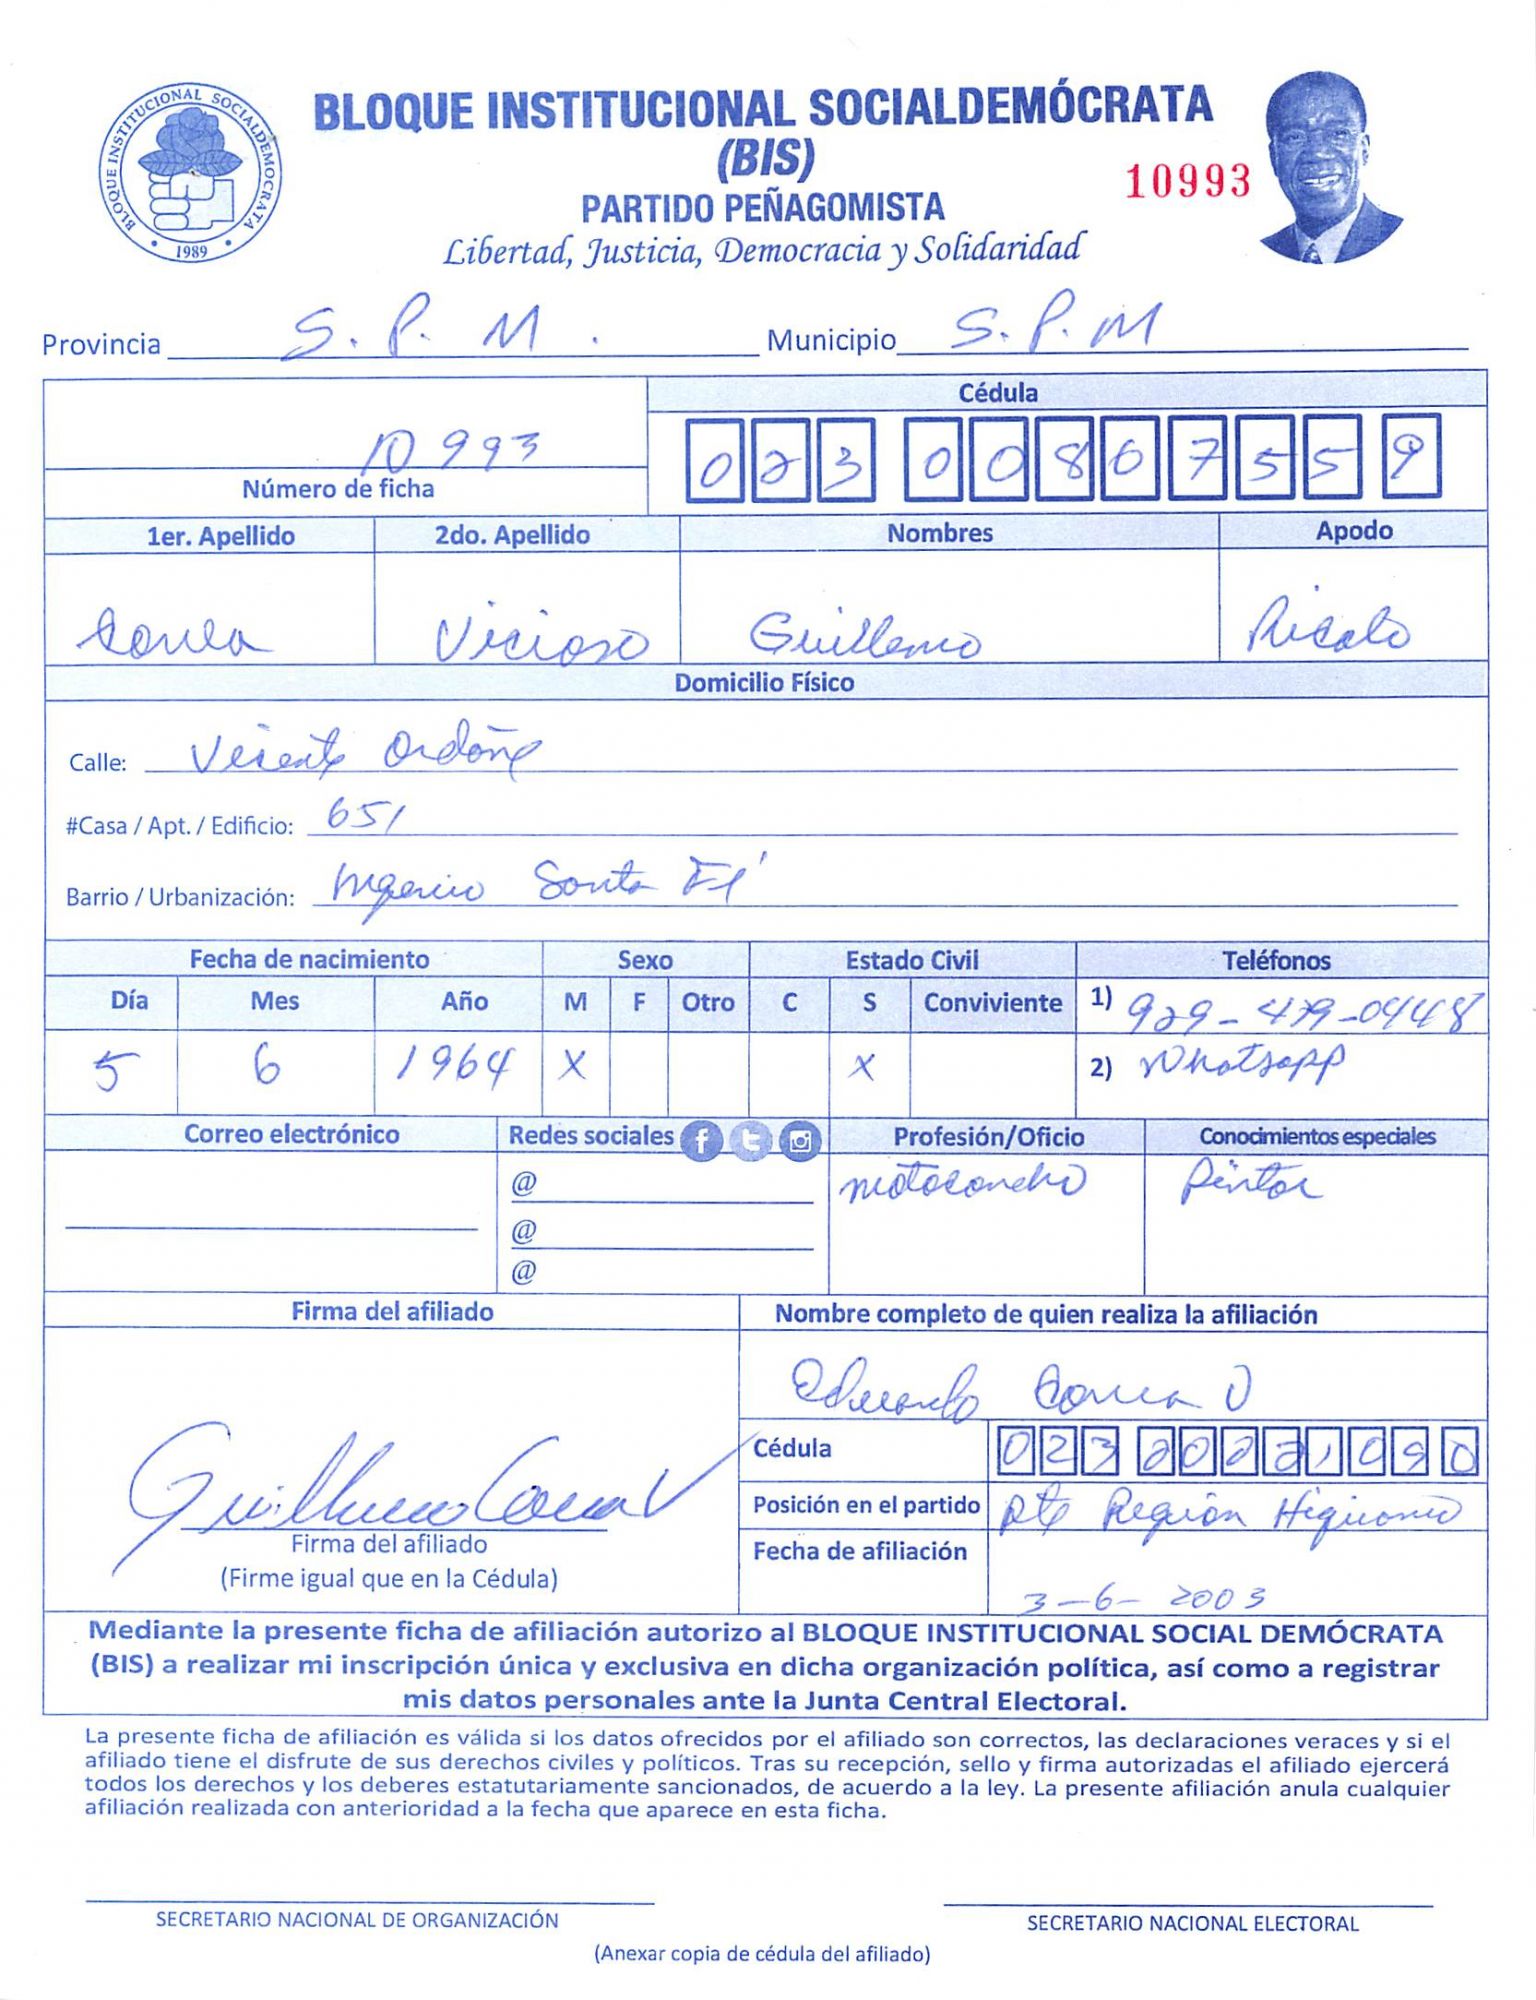 BLOQUE INSTITUCIONAL SOCIALDEMÓCRATA
(BIS)
PARTIDO PEÑAGOMISTA
Libertad, Justicia, Democracia y Solidaridad
10993
BLOQUE INSTITUCIONAL SOCIALDEMOCRATA
1989
Provincia S. P. M. Municipio S. P. M
10993
Número de ficha
Cédula
023 0086755 9
1er. Apellido 2do. Apellido Nombres Apodo
Vicioso Guillermo
Domicilio Físico
Calle: Vicente Ordoñe
#Casa / Apt. / Edificio: 651
Barrio / Urbanización: Ingenio Santa Fé
Fecha de nacimiento Sexo Estado Civil Teléfonos
Día Mes Año M F Otro C S Conviviente 1) 929-479-0448
5 6 1964 X X 2) Whatsapp
Correo electrónico Redes sociales Profesión/Oficio Conocimientos especiales
@ motoconcho Pintor
@
@
Firma del afiliado Nombre completo de quien realiza la afiliación
Eduardo
Cédula 023 2022109 0
Posición en el partido Pte Región
Firma del afiliado
(Firme igual que en la Cédula)
Fecha de afiliación
3-6-2003
Mediante la presente ficha de afiliación autorizo al BLOQUE INSTITUCIONAL SOCIAL DEMÓCRATA
(BIS) a realizar mi inscripción única y exclusiva en dicha organización política, así como a registrar
mis datos personales ante la Junta Central Electoral.
La presente ficha de afiliación es válida si los datos ofrecidos por el afiliado son correctos, las declaraciones veraces y si el
afiliado tiene el disfrute de sus derechos civiles y políticos. Tras su recepción, sello y firma autorizadas el afiliado ejercerá
todos los derechos y los deberes estatutariamente sancionados, de acuerdo a la ley. La presente afiliación anula cualquier
afiliación realizada con anterioridad a la fecha que aparece en esta ficha.
SECRETARIO NACIONAL DE ORGANIZACIÓN SECRETARIO NACIONAL ELECTORAL
(Anexar copia de cédula del afiliado)